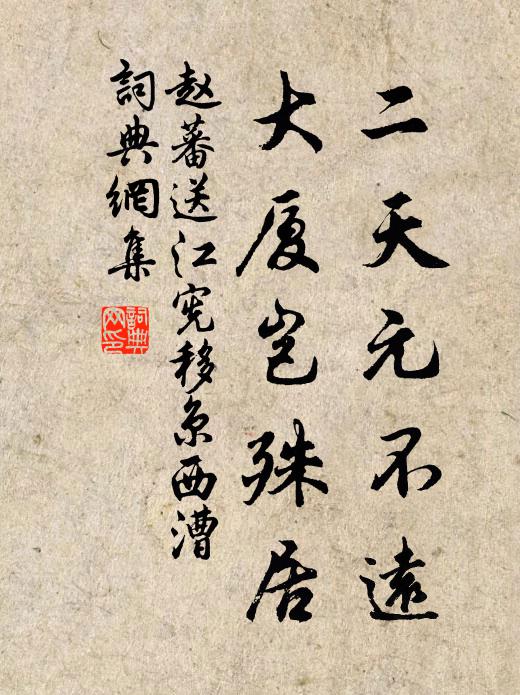 二天元不遠
大厦岂殊居
赵蕃送江宪移京西漕
詞典網集
詞典网印